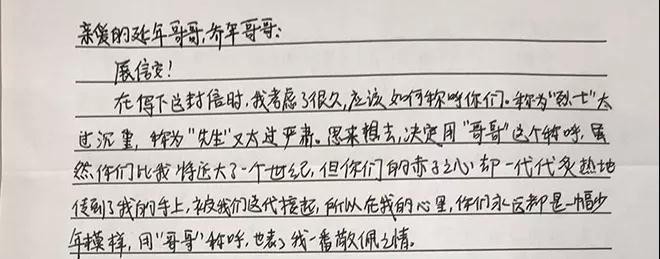 亲爱的延年哥哥，乔年哥哥：
展信安！
在写下这封信时，我考虑了很久，应该如何称呼你们。称为“烈士”太
过沉重，称为“先生”又太过严肃。思来想去，决定用“哥哥”这个称呼，虽
然你们比我将近大了一个世纪，但你们的赤子之心却一代代炙热地
传到了我的手上，被我们这代接起，所以在我的心里，你们永远都是一幅少
年模样，用“哥哥”称呼，也表了我一番敬佩之情。